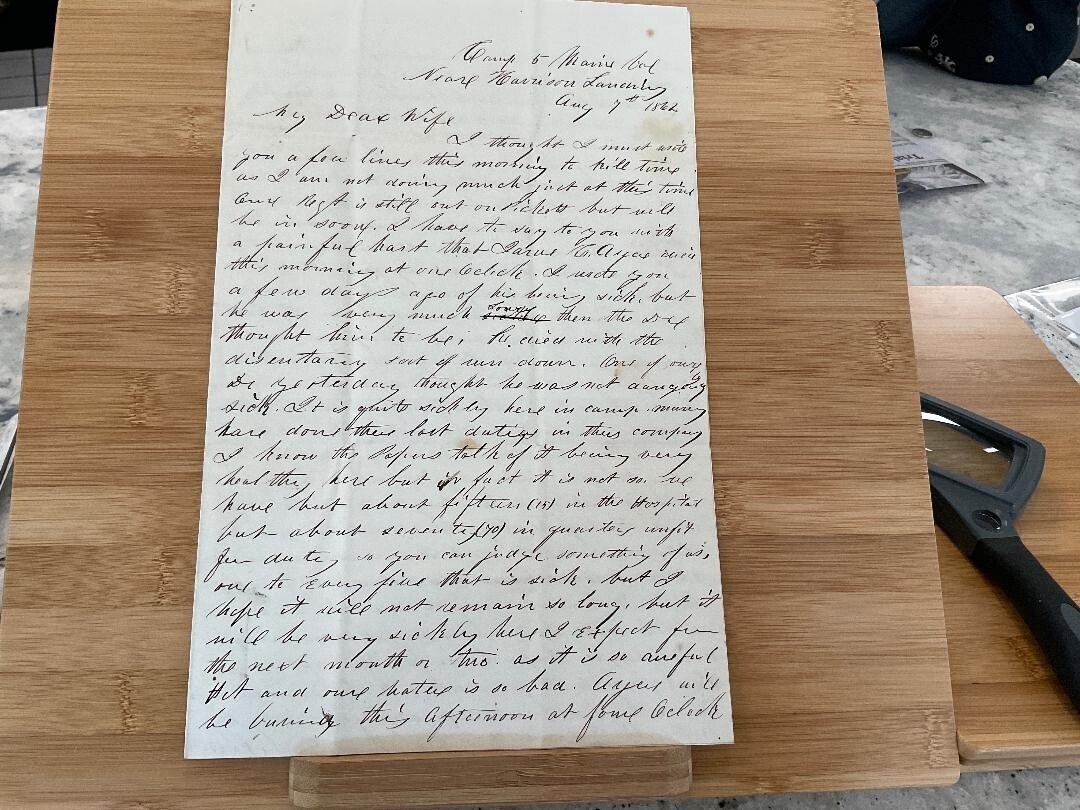 Camp 5 Maine Vol
Neare Harrison Landing
Aug 7th 1862
My Dear Wife
I thought I must write
you a few lines this morning to kill time
as I am not doing much just at this time
Our Regt is still out on Pickett but will
be in soon. I have to say to you with
a painful hart that C. Ayer died
this morning at one Oclock. I wrote you
a few days ago of his being sick. but
he was very much lower then the Dr
thought him to be, He died with the
disentary sort of run down. One of ours
Dr yesterday thought he was not dangerously
sick. It is quite sickly here in camp. many
have done thier last duties in this company
I know the Papers talk of it being very
healthy here but in fact it is not so. we
have but about fifteen (15) in the Hospital
but about seventy (70) in quarters unfit
for duty so you can judge something of us,
one to Every five that is sick. but I
hope it will not remain so long. but it
will be very sickly here I Expect for
the next month or two. as it is so aweful
Hot and our water is so bad. Ayer will
be buried this Afternoon at four Oclock